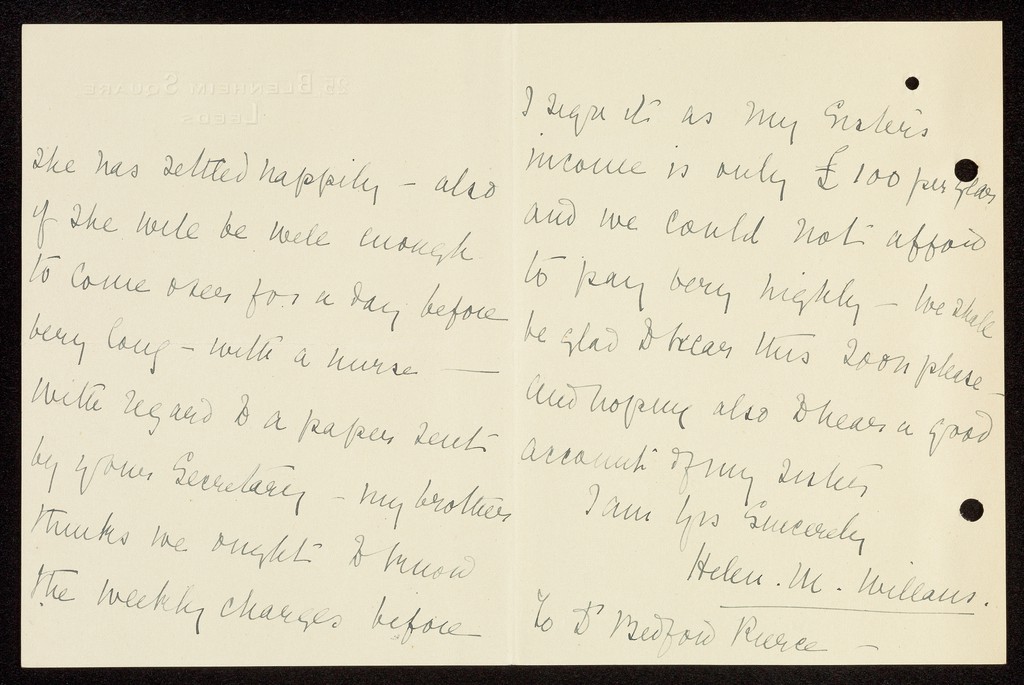 25 BLENHEIM SQUARE
LEEDS
she has settled happily – also
if she will be well enough
to come over for a day before
very long – with a nurse —
With regard to a paper sent
by your Secretary – my brother
thinks we ought to know
the weekly charges before
I sign it as my Sister's
income is only £100 per year
and we could not afford
to pay very highly – We shall
be glad to hear this soon please –
and hoping also to hear a good
account of my sister
I am yrs Sincerely
Helen. M. Willans.
To Dr Bedford Pierce —